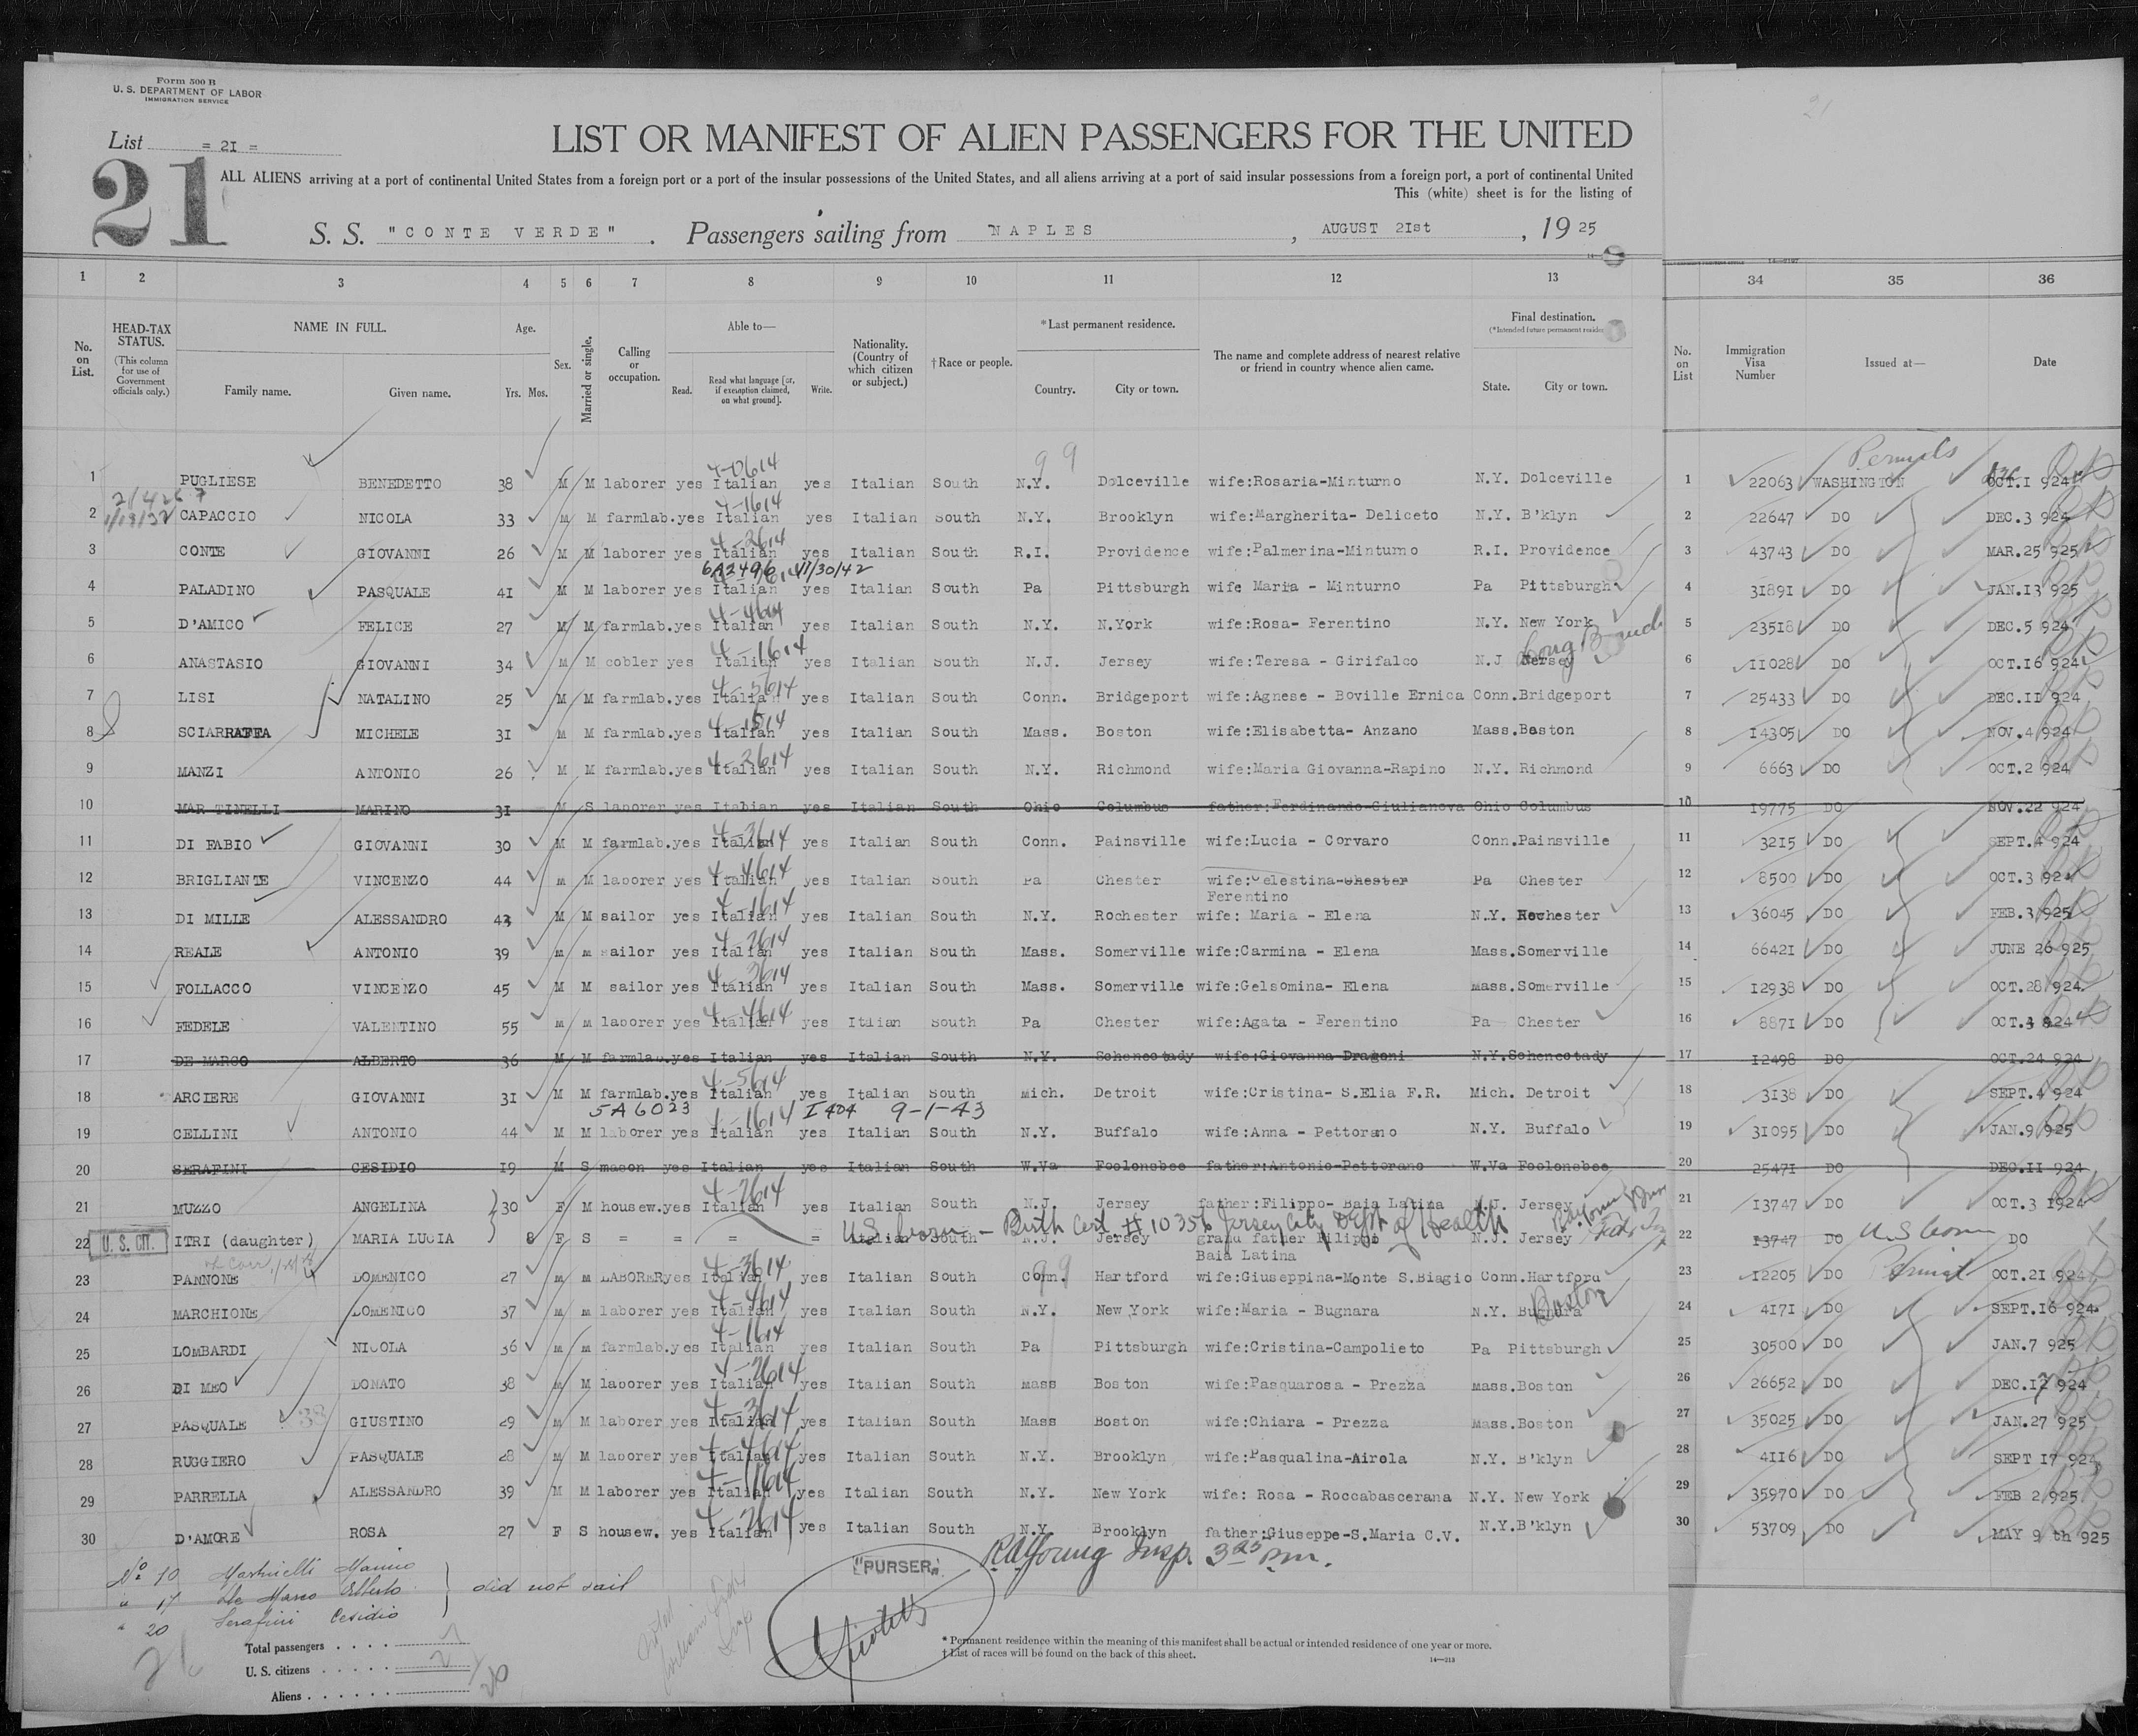 Form 500 B
U. S. DEPARTMENT OF LABOR
IMMIGRATION SERVICE
List = 21 =
21
LIST OR MANIFEST OF ALIEN PASSENGERS FOR THE UNITED
ALL ALIENS arriving at a port of continental United States from a foreign port or a port of the insular possessions of the United States, and all aliens arriving at a port of said insular possessions from a foreign port, a port of continental United
This (white) sheet is for the listing of
S. S. "CONTE VERDE" . Passengers sailing from NAPLES , AUGUST 21st , 19 25
1 2 3 4 5 6 7 8 9 10 11 12 13 34 35 36
No. on List. HEAD-TAX STATUS. (This column for use of Government officials only.) NAME IN FULL. Family name. Given name. Age. Yrs. Mos. Sex. Married or single. Calling or occupation. Able to— Read. Read what language [or, if exemption claimed, on what ground]. Write. Nationality. (Country of which citizen or subject.) †Race or people. *Last permanent residence. Country. City or town. The name and complete address of nearest relative or friend in country whence alien came. Final destination. (*Intended future permanent reside State. City or town. No. on List Immigration Visa Number Issued at— Date
9 9 Permits
4-0614
1 PUGLIESE BENEDETTO 38 M M laborer yes Italian yes Italian South N.Y. Dolceville wife:Rosaria-Minturno N.Y. Dolceville 1 22063 WASHINGTON OCT.1 924
4-1614
2 CAPACCIO NICOLA 33 M M farmlab.yes Italian yes Italian South N.Y. Brooklyn wife:Margherita- Deliceto N.Y. B'klyn 2 22647 DO DEC.3 924
4-2614
3 CONTE GIOVANNI 26 M M laborer yes Italian yes Italian South R.I. Providence wife:Palmerina-Minturno R.I. Providence 3 43743 DO MAR.25 925
6A2496 11/30/42
4 PALADINO PASQUALE 41 M M laborer yes Italian yes Italian South Pa Pittsburgh wife Maria - Minturno Pa Pittsburgh 4 31891 DO JAN.13 925
4-4614
5 D'AMICO FELICE 27 M M farmlab.yes Italian yes Italian South N.Y. N.York wife:Rosa- Ferentino N.Y. New York 5 23518 DO DEC.5 924
4-1614 Long Branch
6 ANASTASIO GIOVANNI 34 M M cobler yes Italian yes Italian South N.J. Jersey wife:Teresa - Girifalco N.J Jersey 6 11028 DO OCT.16 924
4-5614
7 LISI NATALINO 25 M M farmlab.yes Italian yes Italian South Conn. Bridgeport wife:Agnese - Boville Ernica Conn.Bridgeport 7 25433 DO DEC.11 924
8 SCIARRAFFA MICHELE 31 M M farmlab.yes Italian yes Italian South Mass. Boston wife:Elisabetta- Anzano Mass.Boston 8 14305 DO NOV.4 924
4-2614
9 MANZI ANTONIO 26 M M farmlab.yes Italian yes Italian South N.Y. Richmond wife:Maria Giovanna-Rapino N.Y. Richmond 9 6663 DO OCT.2 924
10 MAR TINELLI MARINO 31 M S laborer yes Italian yes Italian South Ohio Columbus father:Ferdinando-Giulianova Ohio Columbus 10 19775 DO NOV.22 924
4-3614
11 DI FABIO GIOVANNI 30 M M farmlab.yes Italian yes Italian South Conn. Painsville wife:Lucia - Corvaro Conn.Painsville 11 3215 DO SEPT.4 924
4-4614
12 BRIGLIANTE VINCENZO 44 M M laborer yes Italian yes Italian South Pa Chester wife:Celestina-Chester Pa Chester 12 8500 DO OCT.3 924
Ferentino
4-1614
13 DI MILLE ALESSANDRO 43 M M sailor yes Italian yes Italian South N.Y. Rochester wife: Maria - Elena N.Y. Rochester 13 36045 DO FEB.3 925
4-2614
14 REALE ANTONIO 39 M M sailor yes Italian yes Italian South Mass. Somerville wife:Carmina - Elena Mass.Somerville 14 66421 DO JUNE 26 925
4-3614
15 FOLLACCO VINCENZO 45 M M sailor yes Italian yes Italian South Mass. Somerville wife:Gelsomina- Elena Mass.Somerville 15 12938 DO OCT.28 924
4-4614
16 FEDELE VALENTINO 55 M M laborer yes Italian yes Italian South Pa Chester wife:Agata - Ferentino Pa Chester 16 8871 DO OCT.4 924
17 DE MARCO ALBERTO 36 M M farmlab.yes Italian yes Italian South N.Y. Schenectady wife:Giovanna-Dragoni N.Y.Schenectady 17 12498 DO OCT.24 924
4-5614
18 ARCIERE GIOVANNI 31 M M farmlab.yes Italian yes Italian South Mich. Detroit wife:Cristina- S.Elia F.R. Mich. Detroit 18 3138 DO SEPT.4 924
5A6023 4-1614 I404 9-1-43
19 CELLINI ANTONIO 44 M M laborer yes Italian yes Italian South N.Y. Buffalo wife:Anna - Pettorano N.Y. Buffalo 19 31095 DO JAN.9 925
20 SERAFINI CESIDIO 19 M S mason yes Italian yes Italian South W.Va Foolonsbee father:Antonio-Pettorano W.Va Foolonsbee 20 25471 DO DEC.11 924
4-2614
21 MUZZO ANGELINA 30 F M housew.yes Italian yes Italian South N.J. Jersey father:Filippo- Baia Latina N.J. Jersey 21 13747 DO OCT.3 1924
US born - Birth Cert #10356 Jersey City Dept of Health
22 U. S. CIT. ITRI (daughter) MARIA LUCIA 8 F S = = = = Italian South N.J. Jersey grand father Filippo N.J. Jersey 22 13747 DO US born DO
Baia Latina
4-3614
23 PANNONE DOMENICO 27 M M LABORERyes Italian yes Italian South Conn. Hartford wife:Giuseppina-Monte S.Biagio Conn.Hartford 23 12205 DO Permit OCT.21 924
4-4614 Boston
24 MARCHIONE DOMENICO 37 M M laborer yes Italian yes Italian South N.Y. New York wife:Maria - Bugnara N.Y. Bugnara 24 4171 DO SEPT.16 924
4-1614
25 LOMBARDI NICOLA 36 M M farmlab.yes Italian yes Italian South Pa Pittsburgh wife:Cristina-Campolieto Pa Pittsburgh 25 30500 DO JAN.7 925
4-2614
26 DI MEO DONATO 38 M M laborer yes Italian yes Italian South Mass Boston wife:Pasquarosa - Prezza Mass.Boston 26 26652 DO DEC.12 924
4-3614
27 PASQUALE 38 GIUSTINO 29 M M laborer yes Italian yes Italian South Mass Boston wife:Chiara - Prezza Mass.Boston 27 35025 DO JAN.27 925
4-4614
28 RUGGIERO PASQUALE 28 M M laborer yes Italian yes Italian South N.Y. Brooklyn wife:Pasqualina-Airola N.Y. B'klyn 28 4116 DO SEPT 17 924
4-1614
29 PARRELLA ALESSANDRO 39 M M laborer yes Italian yes Italian South N.Y. New York wife: Rosa - Roccabascerana N.Y. New York 29 35970 DO FEB 2 925
4-2614
30 D'AMORE ROSA 27 F S housew. yes Italian yes Italian South N.Y. Brooklyn father:Giuseppe-S.Maria C.V. N.Y.B'klyn 30 53709 DO MAY 9 th 925
RA Young Insp. 3 25 pm.
No 10 Martinelli Marino
" 17 De Marco Alberto did not sail
" 20 Serafini Cesidio
"PURSER"
Total passengers
U. S. citizens
Aliens
* Permanent residence within the meaning of this manifest shall be actual or intended residence of one year or more.
† List of races will be found on the back of this sheet.
14—213